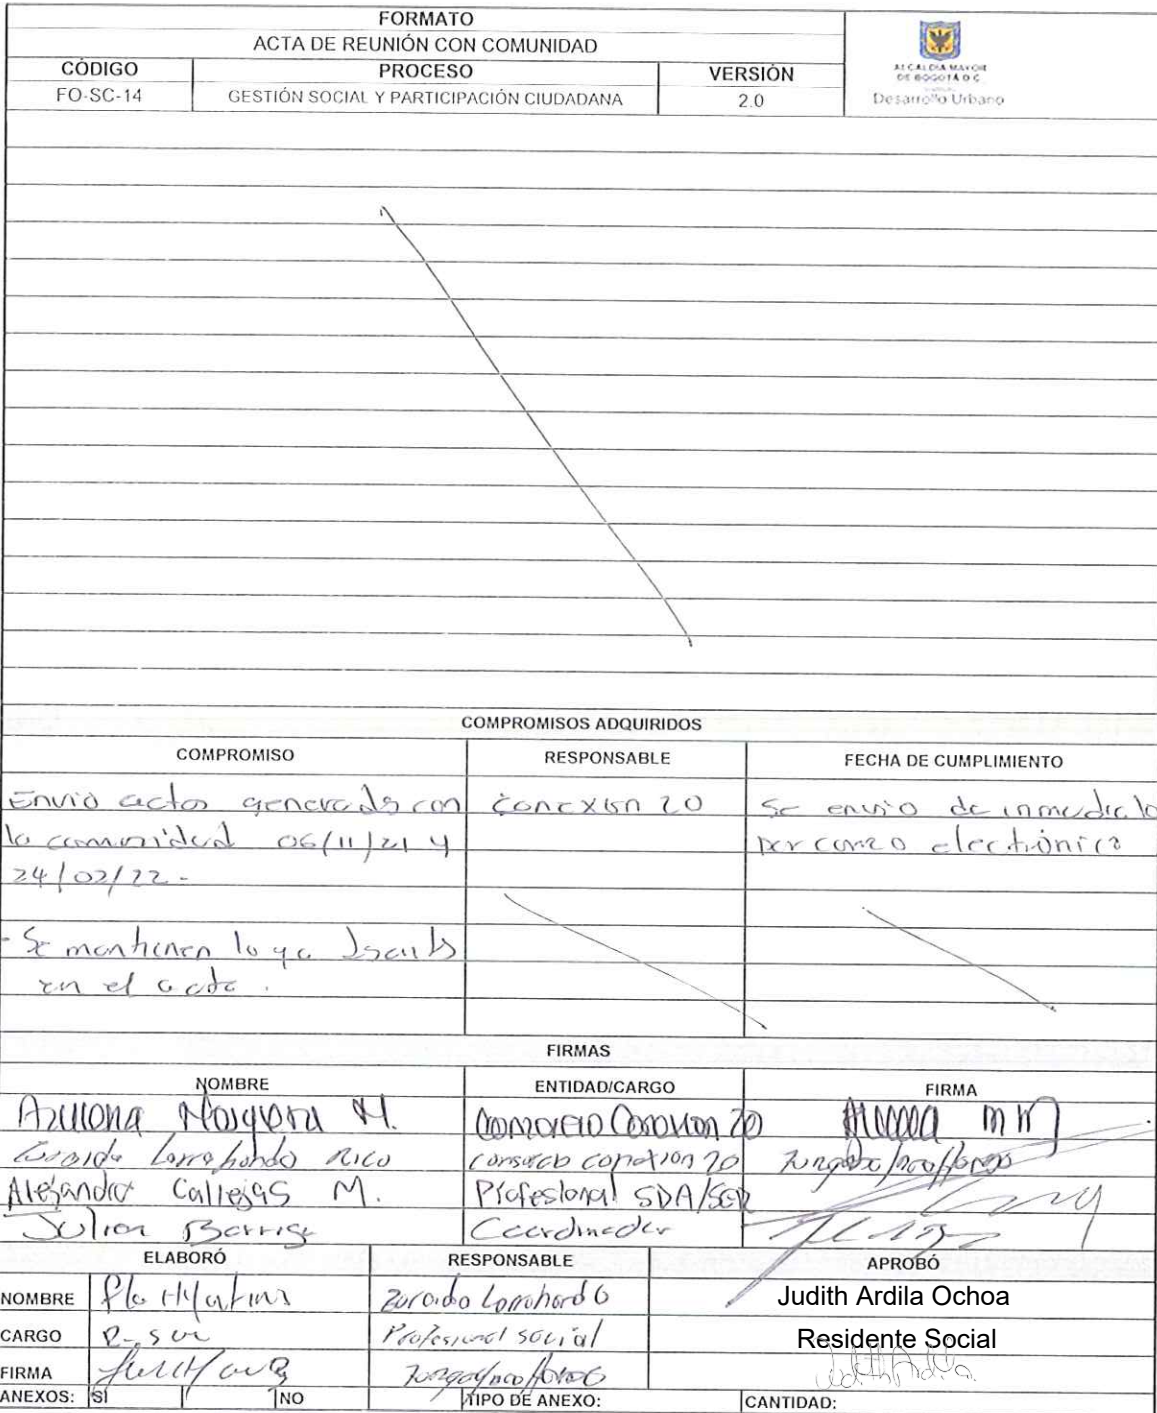 FORMATO
ACTA DE REUNIÓN CON COMUNIDAD
CÓDIGO PROCESO VERSIÓN
FO-SC-14 GESTIÓN SOCIAL Y PARTICIPACIÓN CIUDADANA 2.0
ALCALDIA MAYOR
DE BOGOTÁ D.C.
Desarrollo Urbano
COMPROMISOS ADQUIRIDOS
COMPROMISO RESPONSABLE FECHA DE CUMPLIMIENTO
Envio actas generadas con conexión 20 Se envio de inmediato
la comunidad 06/11/21 y por correo electrónico
24/02/22.-
- Se mantienen lo ya
en el acta.
FIRMAS
NOMBRE ENTIDAD/CARGO FIRMA
Mosquera M. Consorcio Conexion 20
Zoraida Larrahondo Rico Consorcio conexion 20
Alejandra Callejas M. Profesional SDA/SCR
Julian Barriga Coordinador
ELABORÓ RESPONSABLE APROBÓ
NOMBRE Zoraida Larrahondo Judith Ardila Ochoa
CARGO Profesional social Residente Social
FIRMA Judith Ardila
ANEXOS: SI NO TIPO DE ANEXO: CANTIDAD: